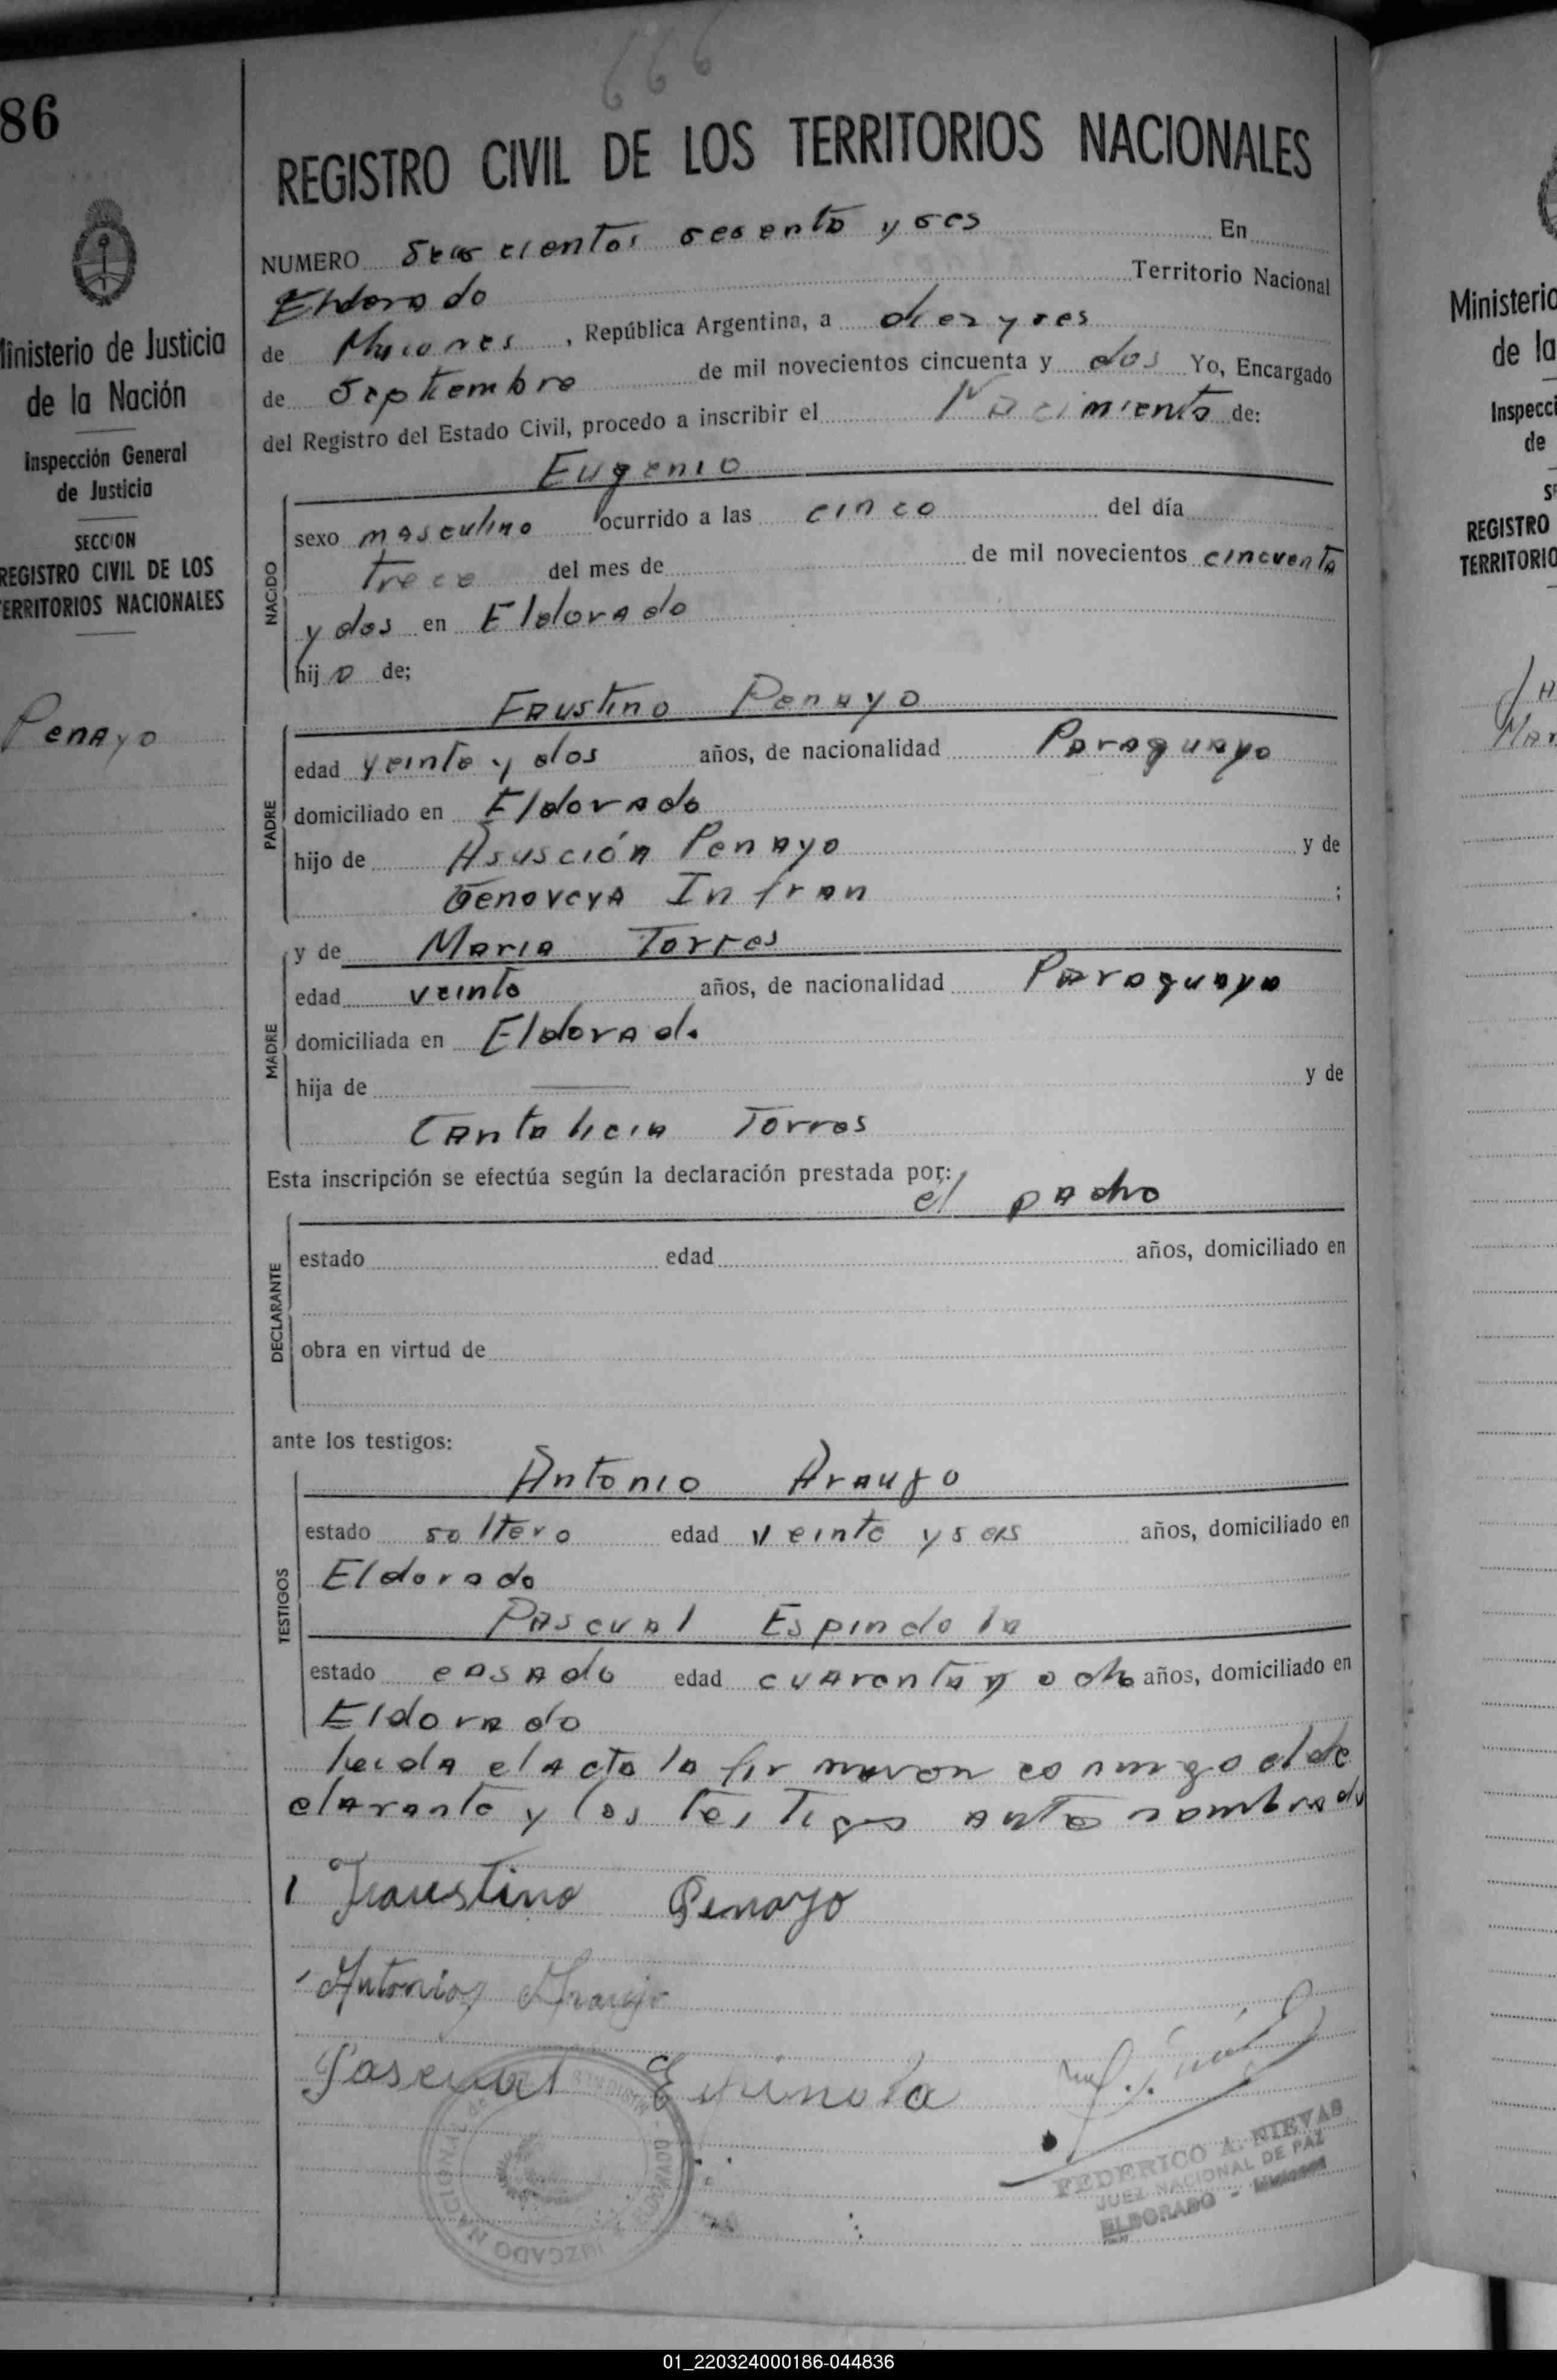 666
86
REGISTRO CIVIL DE LOS TERRITORIOS NACIONALES
NUMERO Seiscientos sesenta y seis En
Eldorado Territorio Nacional
de Misiones, República Argentina, a diez y seis
de septiembre de mil novecientos cincuenta y dos Yo, Encargado
del Registro del Estado Civil, procedo a inscribir el Nacimiento de:
Eugenio
NACIDO
sexo masculino ocurrido a las cinco del día
trece del mes de de mil novecientos cincuenta
y dos en Eldorado
hijo de;
Faustino Penayo
PADRE
edad veinte y dos años, de nacionalidad Paraguayo
domiciliado en Eldorado
hijo de Asusción Penayo y de
Genoveva Infran ;
MADRE
y de Maria Torres
edad veinte años, de nacionalidad Paraguaya
domiciliada en Eldorado
hija de y de
Cantalicia Torres
Esta inscripción se efectúa según la declaración prestada por:
el padre
DECLARANTE
estado edad años, domiciliado en
obra en virtud de
ante los testigos:
TESTIGOS
Antonio Araujo
estado soltero edad veinte y seis años, domiciliado en
Eldorado
Pascual Espindola
estado casado edad cuarenta y ocho años, domiciliado en
Eldorado
leida el acta la firmaron conmigo el de
clarante y los testigos ante nombrados
Faustino Penayo
Antonio Araujo
Pascual Espinola
FEDERICO A. NIEVAS
JUEZ NACIONAL DE PAZ
ELDORADO - Misiones
JUZGADO NACIONAL de
ELDORADO
Ministerio de Justicia
de la Nación
Inspección General
de Justicia
SECCION
REGISTRO CIVIL DE LOS
TERRITORIOS NACIONALES
Penayo
Ministerio
de la
Inspecci
de
REGISTRO
TERRITORIO
01_220324000186-044836